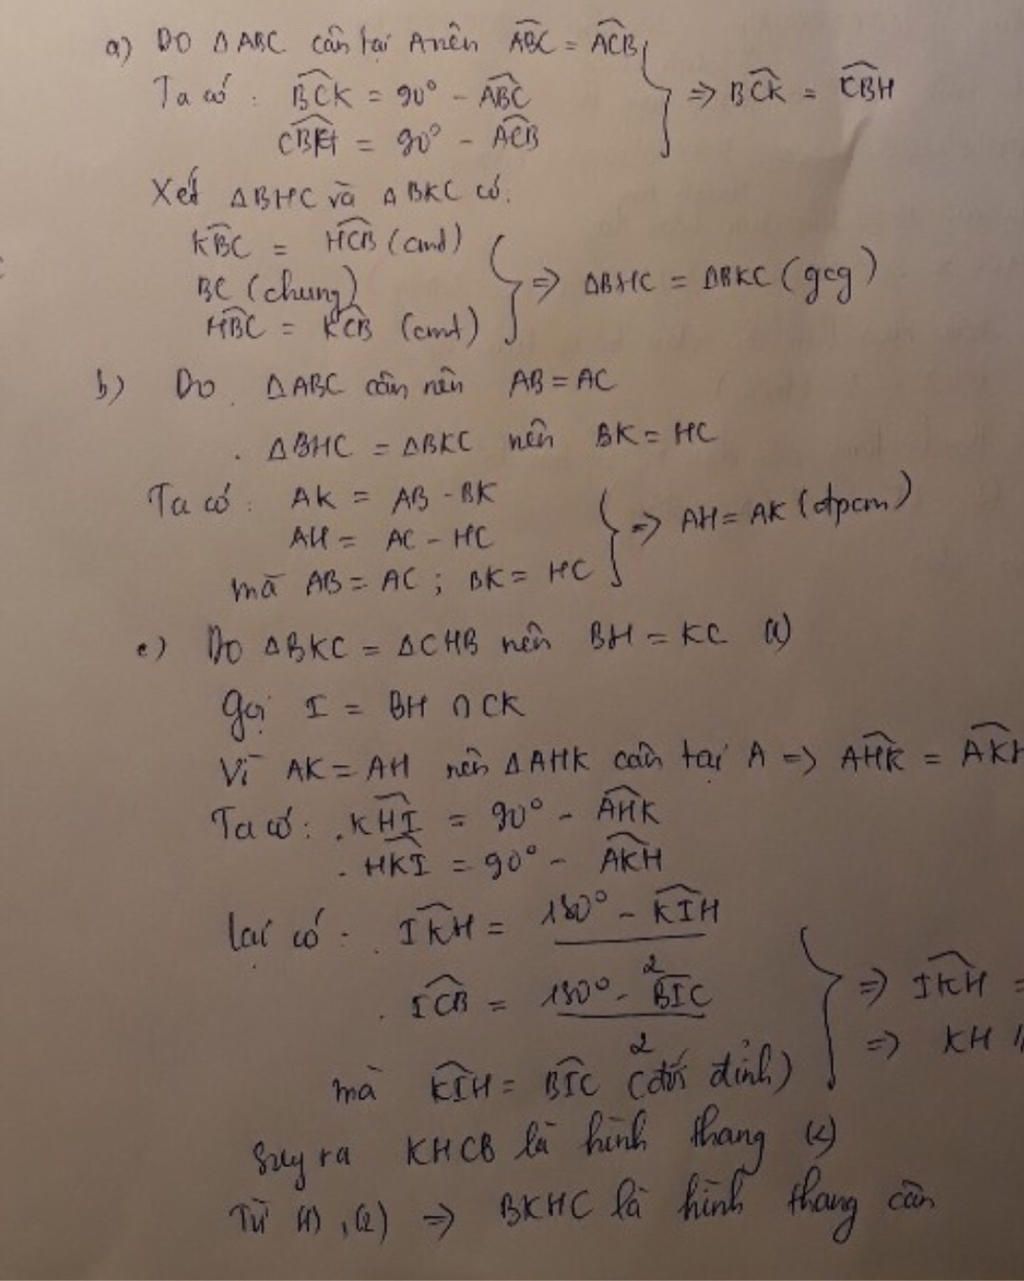 a) Do ΔABC cân tại A nên ∠ABC = ∠ACB
Ta có: ∠BCK = 90° - ∠ABC
∠CBH = 90° - ∠ACB
} => ∠BCK = ∠CBH
Xét ΔBHC và ΔBKC có:
∠KBC = ∠HCB (cmt)
BC (chung)
∠HBC = ∠KCB (cmt)
} => ΔBHC = ΔBKC (gcg)
b) Do . ΔABC cân nên AB = AC
. ΔBHC = ΔBKC nên BK = HC
Ta có: AK = AB - BK
AH = AC - HC
mà AB = AC ; BK = HC
} => AH = AK (đpcm)
c) Do ΔBKC = ΔCHB nên BH = KC (1)
gọi I = BH ∩ CK
Vì AK = AH nên ΔAHK cân tại A => ∠AHK = ∠AKH
Ta có: . ∠KHI = 90° - ∠AHK
. ∠HKI = 90° - ∠AKH
lại có: . ∠IKH = (180° - ∠KIH)/2
. ∠ICB = (180° - ∠BIC)/2
mà ∠KIH = ∠BIC (đối đỉnh)
} => ∠IKH =
=> KH //
Suy ra KHCB là hình thang (2)
Từ (1), (2) => BKHC là hình thang cân